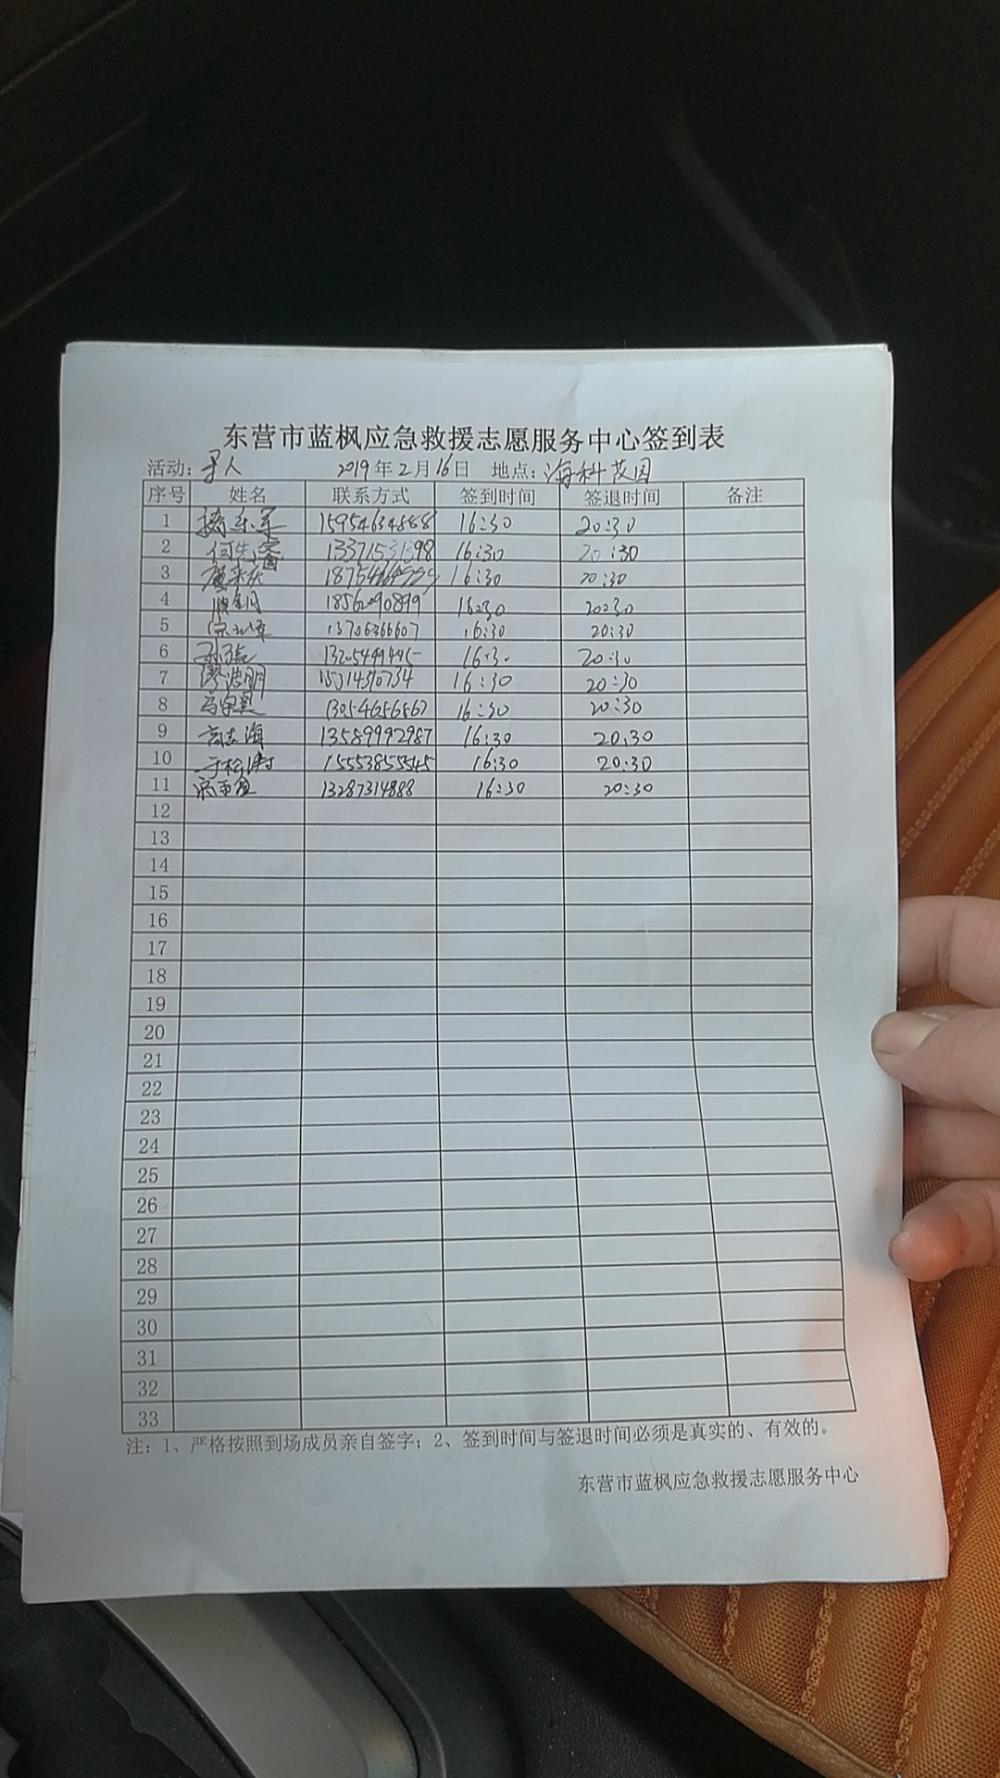 东营市蓝枫应急救援志愿服务中心签到表
活动：寻人 2019年2月16日 地点：海科花园
序号 姓名 联系方式 签到时间 签退时间 备注
1 15954634888 16:30 20:30
2 13371531398 16:30 20:30
3 16:30 20:30
4 18562090899 16:30 20:30
5 13706366607 16:30 20:30
6 16:30 20:30
7 廖波明 16:30 20:30
8 13054656567 16:30 20:30
9 高志海 13589992987 16:30 20:30
10 于松涛 15553855545 16:30 20:30
11 13287314888 16:30 20:30
12
13
14
15
16
17
18
19
20
21
22
23
24
25
26
27
28
29
30
31
32
33
注：1、严格按照到场成员亲自签字；2、签到时间与签退时间必须是真实的、有效的。
东营市蓝枫应急救援志愿服务中心